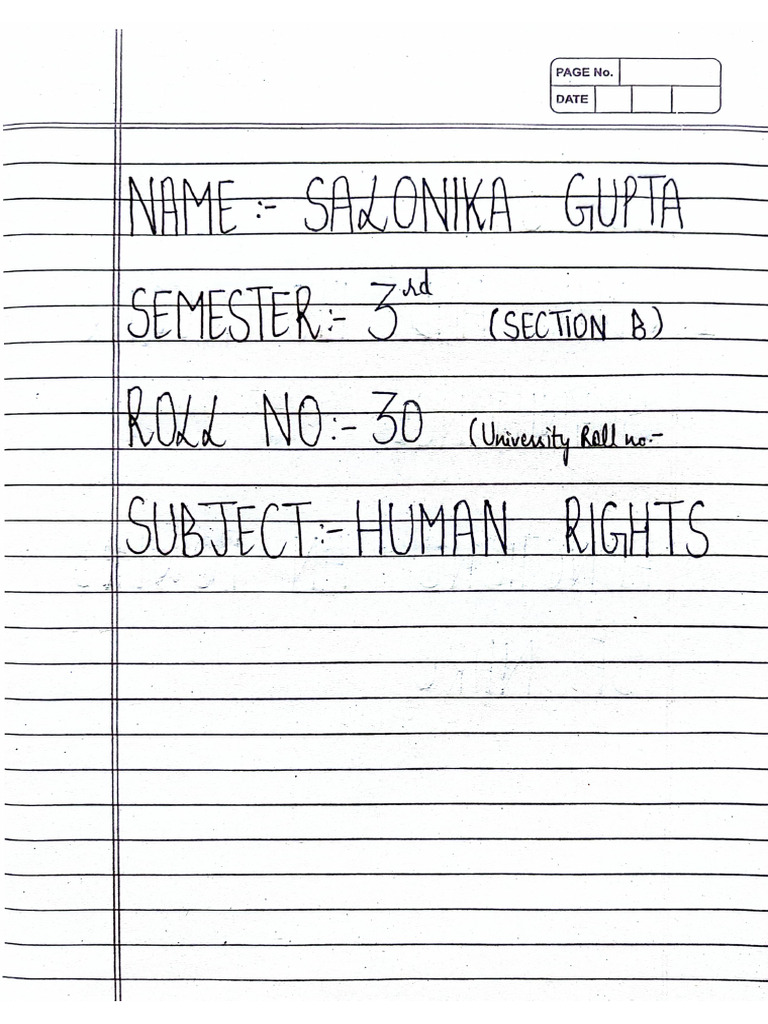 PAGE No.
DATE
NAME:- SALONIKA GUPTA
SEMESTER:- 3rd (SECTION B)
ROLL NO:- 30 (University Roll no.-
SUBJECT:- HUMAN RIGHTS